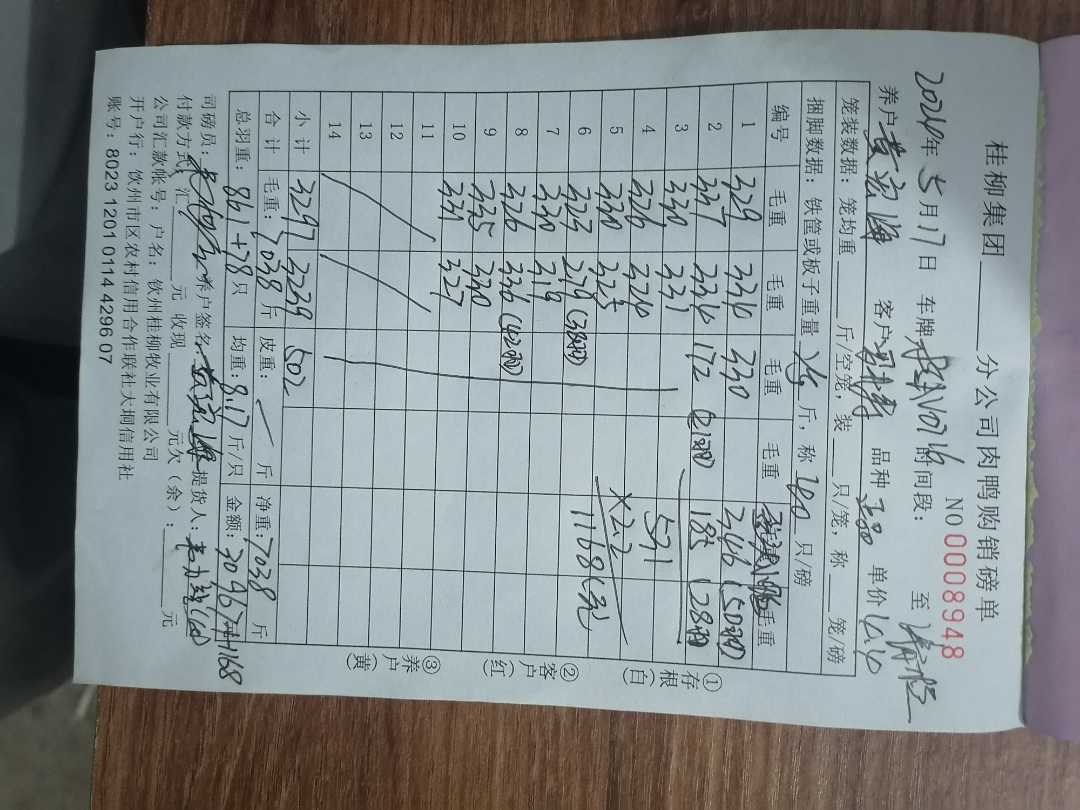 桂柳集团______分公司肉鸭购销磅单
NO 0008948
2026年5月17日 车牌 时间段: 至
养户 黄宏海 客户 品种 单价
笼装数据:笼均重___斤/空笼,装___只/笼,称___笼/磅
捆脚数据:铁筐或板子重量 斤,称 40 只/磅
编号 毛重 毛重 毛重 毛重 毛重
1 329 336 330 246(50只)
2 337 336 172(21只) 185(28只)
3 330 331
4 326 326 531
5 328 325 ×2.2
6 323 278(38只) 1168(元)
7 330 319
8 326 336(42只)
9 335 330
10 331 327
11
12
13
14
小计 3297 3239 502
合计 毛重:7038斤 皮重:/斤 净重:7038斤
总羽重:861+78只 均重:8.17斤/只 金额:30967+1168
司磅员: 养户签名:黄宏海 提货人:
付款方式:汇______元 收现______元欠(余):______元
公司汇款账号:户名:钦州桂柳牧业有限公司
开户行:钦州市区农村信用合作联社大垌信用社
账号:8023 1201 0114 4296 07
①存根(白)
②客户(红)
③养户(黄)